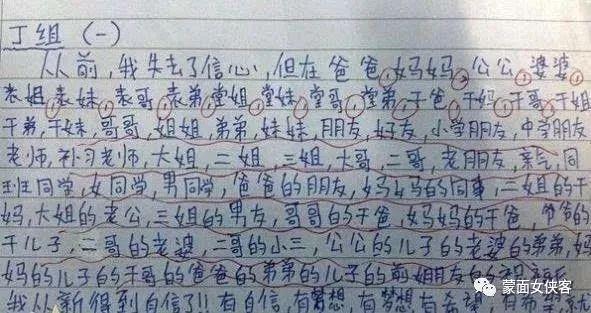 丁组 (一)
从前,我失去了信心,但在爸爸,妈妈,公公,婆婆
表姐,表妹,表哥,表弟,堂姐,堂妹,堂哥,堂弟,干爸,干妈,干哥,干姐
干弟,干妹,哥哥,姐姐,弟弟,妹妹,朋友,好友,小学朋友,中学朋友
老师,补习老师,大姐,二姐,三姐,大哥,二哥,老朋友,亲气,同
班同学,女同学,男同学,爸爸的朋友,妈妈的同事,二姐的干
妈,大姐的老公,三姐的男友,哥哥的干爸,妈妈的干爸,爷爷的
干儿子,二哥的老婆,二哥的小三,公公的儿子的老婆的弟弟,妈
妈的儿子的干哥的爸爸的弟弟的儿子的前女朋友
我从新得到自信了!! 有自信,有梦想,有梦想有希望,有希望就
蒙面女侠客